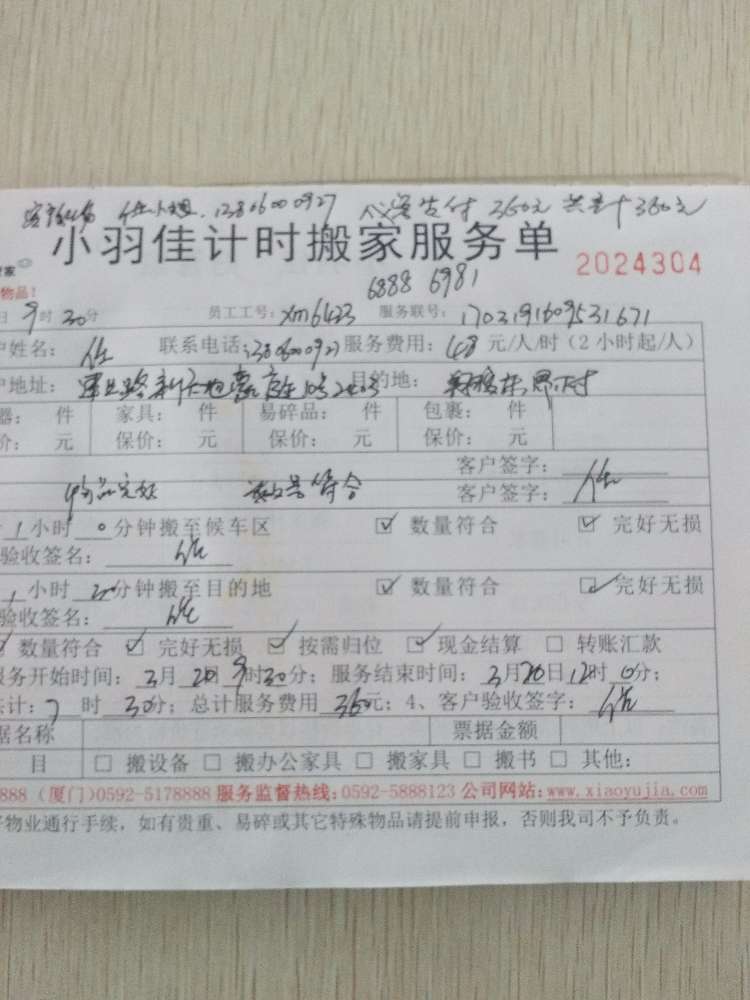 任小姐. 13806000927 支付 360元 共计360元
小羽佳计时搬家服务单
2024304
物品！ 6888 6981
日 9时30分 员工工号：xm6433 服务联号：1703191609531671
户姓名：任 联系电话：13806000927 服务费用：48元/人/时（2小时起/人）
户地址： 目的地：
器： 件 家具： 件 易碎品： 件 包裹： 件
价： 元 保价： 元 保价： 元 保价： 元
客户签字：任
物品完好 数量符合 客户签字：任
1小时0分钟搬至候车区 ☑ 数量符合 ☑ 完好无损
验收签名：任
1小时20分钟搬至目的地 ☑ 数量符合 ☑ 完好无损
验收签名：任
数量符合 ☑ 完好无损 ☑ 按需归位 ☑ 现金结算 □ 转账汇款
服务开始时间：3月20日9时30分；服务结束时间：3月20日12时0分；
计：7时30分；总计服务费用 360元；4、客户验收签字：任
据名称 票据金额
目 □ 搬设备 □ 搬办公家具 □ 搬家具 □ 搬书 □ 其他：
888（厦门)0592-5178888 服务监督热线：0592-5888123 公司网站：www.xiaoyujia.com
物业通行手续，如有贵重、易碎或其它特殊物品请提前申报，否则我司不予负责。